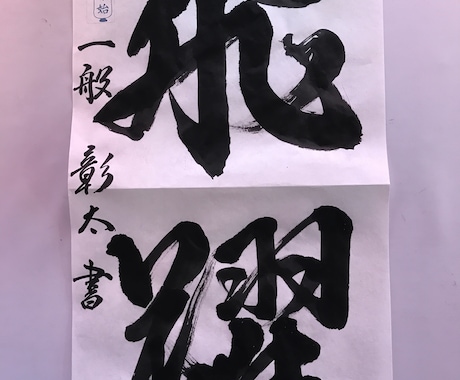 飛躍
一般 彰太書
始